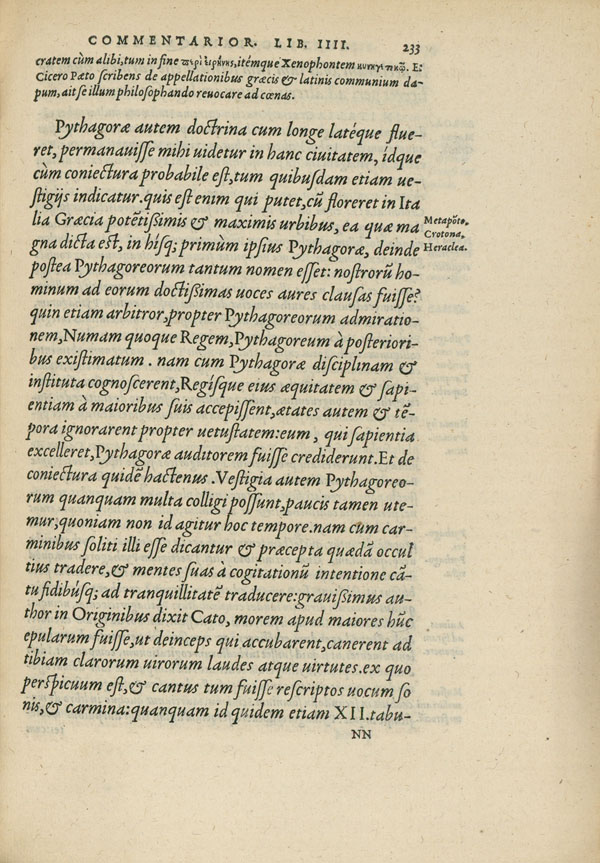 COMMENTARIOR. LIB. IIII. 233
cratem cùm alibi, tum in fine περὶ εἰρήνης, itémque Xenophontem κυνηγετικῷ. E:
Cicero Pæto scribens de appellationibus græcis & latinis communium da-
pum, ait se illum philosophando reuocare ad cœnas.
Pythagoræ autem doctrina cum longe latéque flue-
ret, permanauisse mihi uidetur in hanc ciuitatem, idque
cùm coniectura probabile est, tum quibusdam etiam ue-
stigijs indicatur. quis est enim qui putet, cũ floreret in Ita
lia Græcia potẽtissimis & maximis urbibus, ea quæ ma
gna dicta est, in hisq; primùm ipsius Pythagoræ, deinde
postea Pythagoreorum tantum nomen esset: nostrorũ ho-
minum ad eorum doctissimas uoces aures clausas fuisse?
quin etiam arbitror, propter Pythagoreorum admiratio-
nem, Numam quoque Regem, Pythagoreum à posteriori-
bus existimatum. nam cum Pythagoræ disciplinam &
instituta cognoscerent, Regísque eius æquitatem & sapi-
entiam à maioribus suis accepissent, ætates autem & tẽ-
pora ignorarent propter uetustatem: eum, qui sapientia
excelleret, Pythagoræ auditorem fuisse crediderunt. Et de
coniectura quidẽ hactenus. Vestigia autem Pythagoreo-
rum quanquam multa colligi possunt, paucis tamen ute-
mur, quoniam non id agitur hoc tempore. nam cum car-
minibus soliti illi esse dicantur & præcepta quædã occul
tius tradere, & mentes suas à cogitationũ intentione cã-
tu fidibúsq; ad tranquillitatẽ traducere: grauissimus au-
thor in Originibus dixit Cato, morem apud maiores hũc
epularum fuisse, ut deinceps qui accubarent, canerent ad
tibiam clarorum uirorum laudes atque uirtutes. ex quo
perspicuum est, & cantus tum fuisse rescriptos uocum so
nis, & carmina: quanquam id quidem etiam XII. tabu-
NN
Metapõto,
Crotona,
Heraclea.